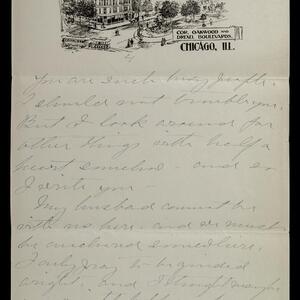 COR. OAKWOOD AND
DREXEL BOULEVARDS.
CHICAGO, ILL.
You are such busy people,
I should not trouble you.
But I look around for
other things with half a
heart somehow - and so
I write you -
My husband cannot be
with us here, and we must
be anchored somewhere.
I only pray to be guided
aright, and I thought maybe